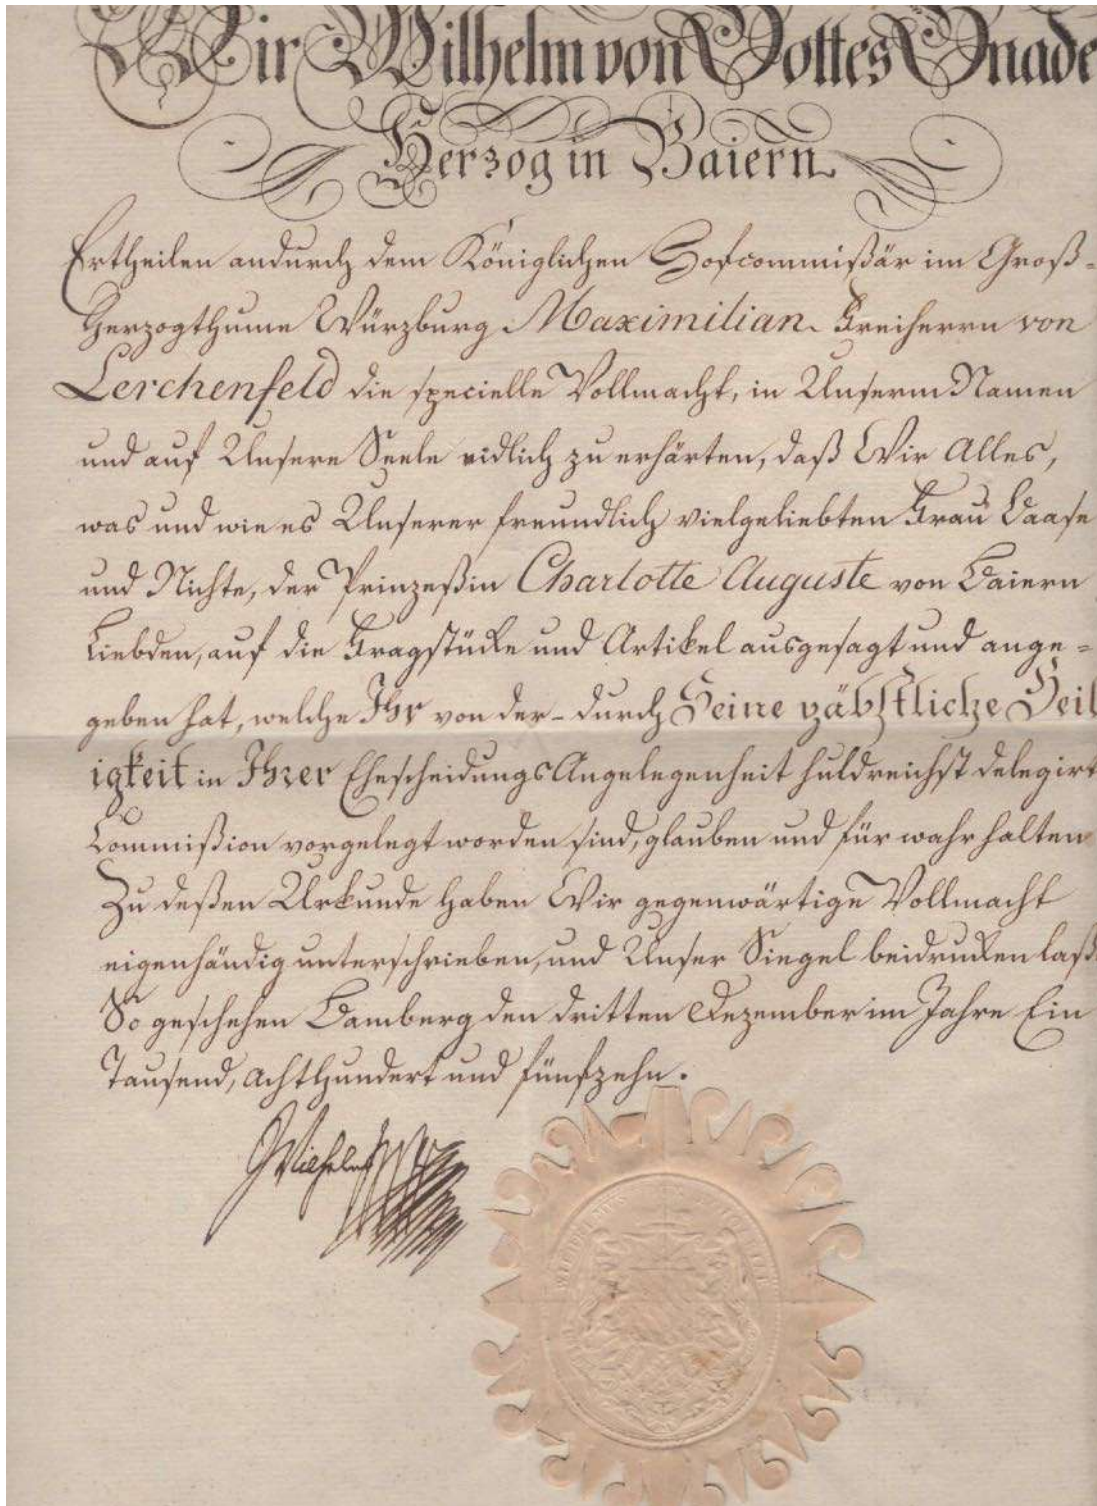 Wir Wilhelm von Gottes Gnade
Herzog in Baiern
Ertheilen andurch dem Königlichen Hofcommißär im Groß-
Herzogthume Würzburg Maximilian Freiherrn von
Lerchenfeld die specielle Vollmacht, in Unserm Namen
und auf Unsere Seele eidlich zu erhärten, daß Wir Alles,
was und wie es Unserer freundlich vielgeliebten Frau Baase
und Nichte, der Prinzeßin Charlotte Auguste von Baiern
Liebden, auf die Fragstücke und Artikel ausgesagt und ange=
geben hat, welche Ihr von der - durch Seine päbstliche Heil
igkeit in Ihrer Ehescheidungs Angelegenheit huldreichst delegirt
Commißion vorgelegt worden sind, glauben und für wahr halten
Zu deßen Urkunde haben Wir gegenwärtige Vollmacht
eigenhändig unterschrieben, und Unser Siegel beidrucken laß
So geschehen Bamberg den dritten Dezember im Jahre Ein
Tausend, achthundert und fünfzehn.
Wilhelm